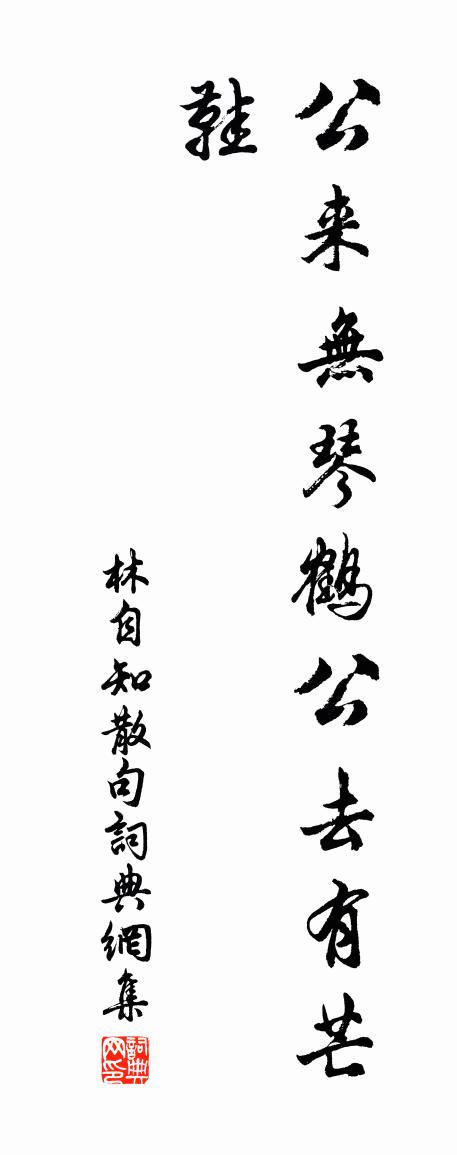 公来無琴鶴公去有芒
鞋
林自知散句詞典網集
詞典网印